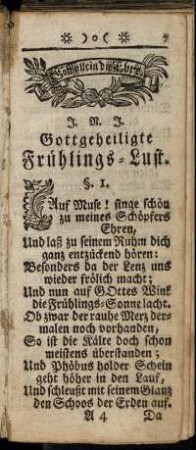 ☼ )o( ☼ 7
Gott allein die Ehre
J. N. J.
Gottgeheiligte
Frühlings-Lust.
§. 1.
Auf Muse! singe schön
zu meines Schöpfers
Ehren,
Und laß zu seinem Ruhm dich
ganz entzückend hören:
Besonders da der Lenz uns
wieder frölich macht;
Und nun auf GOttes Wink
die Frühlings-Sonne lacht.
Ob zwar der rauhe Merz der-
malen noch vorhanden,
So ist die Kälte doch schon
meistens überstanden;
Und Phöbus holder Schein
geht höher in den Lauf,
Und schleußt mit seinem Glanz
den Schoos der Erden auf.
A 4 Da